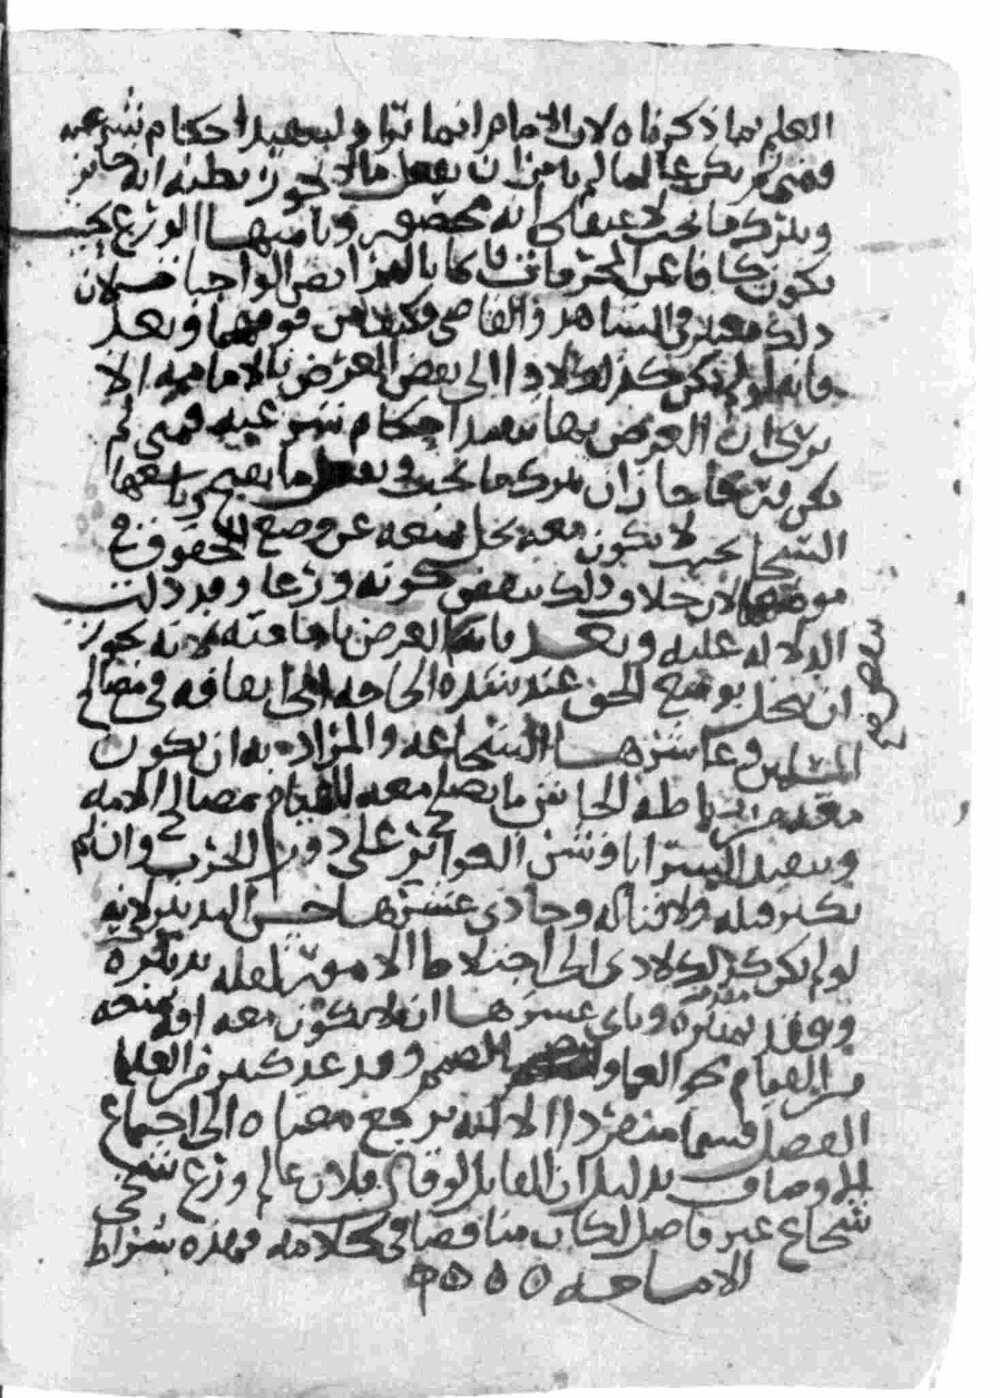 العلم بما ذكرناه لان الامام انما يراد لتنفيذ احكام شرعيه
فمتى لم يكن عالما لم يامن ان يفعل ما لا يجوز بظنه انه جايز
ويترك ما يجب لاعتقاده انه محضور وثامنها الورع بحيث
يكون كافا عن المحرمات قايما بالفرايض الواجبات لان
ذلك معتبر في الشاهد والقاضي فكيف من فوقهما وبعد
فانه لو لم يكن كذلك لادا الى نقض الغرض بالامامه الا
ترى ان الغرض بها تنفيذ احكام شرعيه فمتى لم
يكن ورعا جاز ان يترك ما يجب ويفعل ما يقبح وتاسعها
السخا بحيث لا يكون معه بخل يمنعه عن وضع الحقوق في
مواضعها لان خلاف ذلك ينقض كونه ورعا وقد دلت
الدلاله عليه وبعد فانه الغرض بامامته لانه يجوز
ان يبخل بوضع الحق عند شده الحاجه الى انفاقه في مصالح
المسلمين وعاشرها الشجاعه والمراد به ان يكون
معه من رباطه الجاش ما يصلح معه للقيام بمصالح الامه
وتنفيذ السرايا وشن الغوائر على ذوي الحرب وان لم
يكثر قتله وقتاله وحادي عشرها حسن التدبير لانه
لو لم يكن كذلك لادى الى اختلاط الامور لقله تدبيره
وفقد تمييزه وثاني عشرها ان لا تكون معه افه تمنعه
من القيام نحو العما والصمم وقد عد كثير من العلما
الفضل قسما منفردا الا انه يرجع معناه الى اجتماع
الاوصاف بدليل ان القايل لو قال فلان عالم ورع سخي
شجاع غير فاضل لكان مناقضا في كلامه فهذه شرايط
الامامه